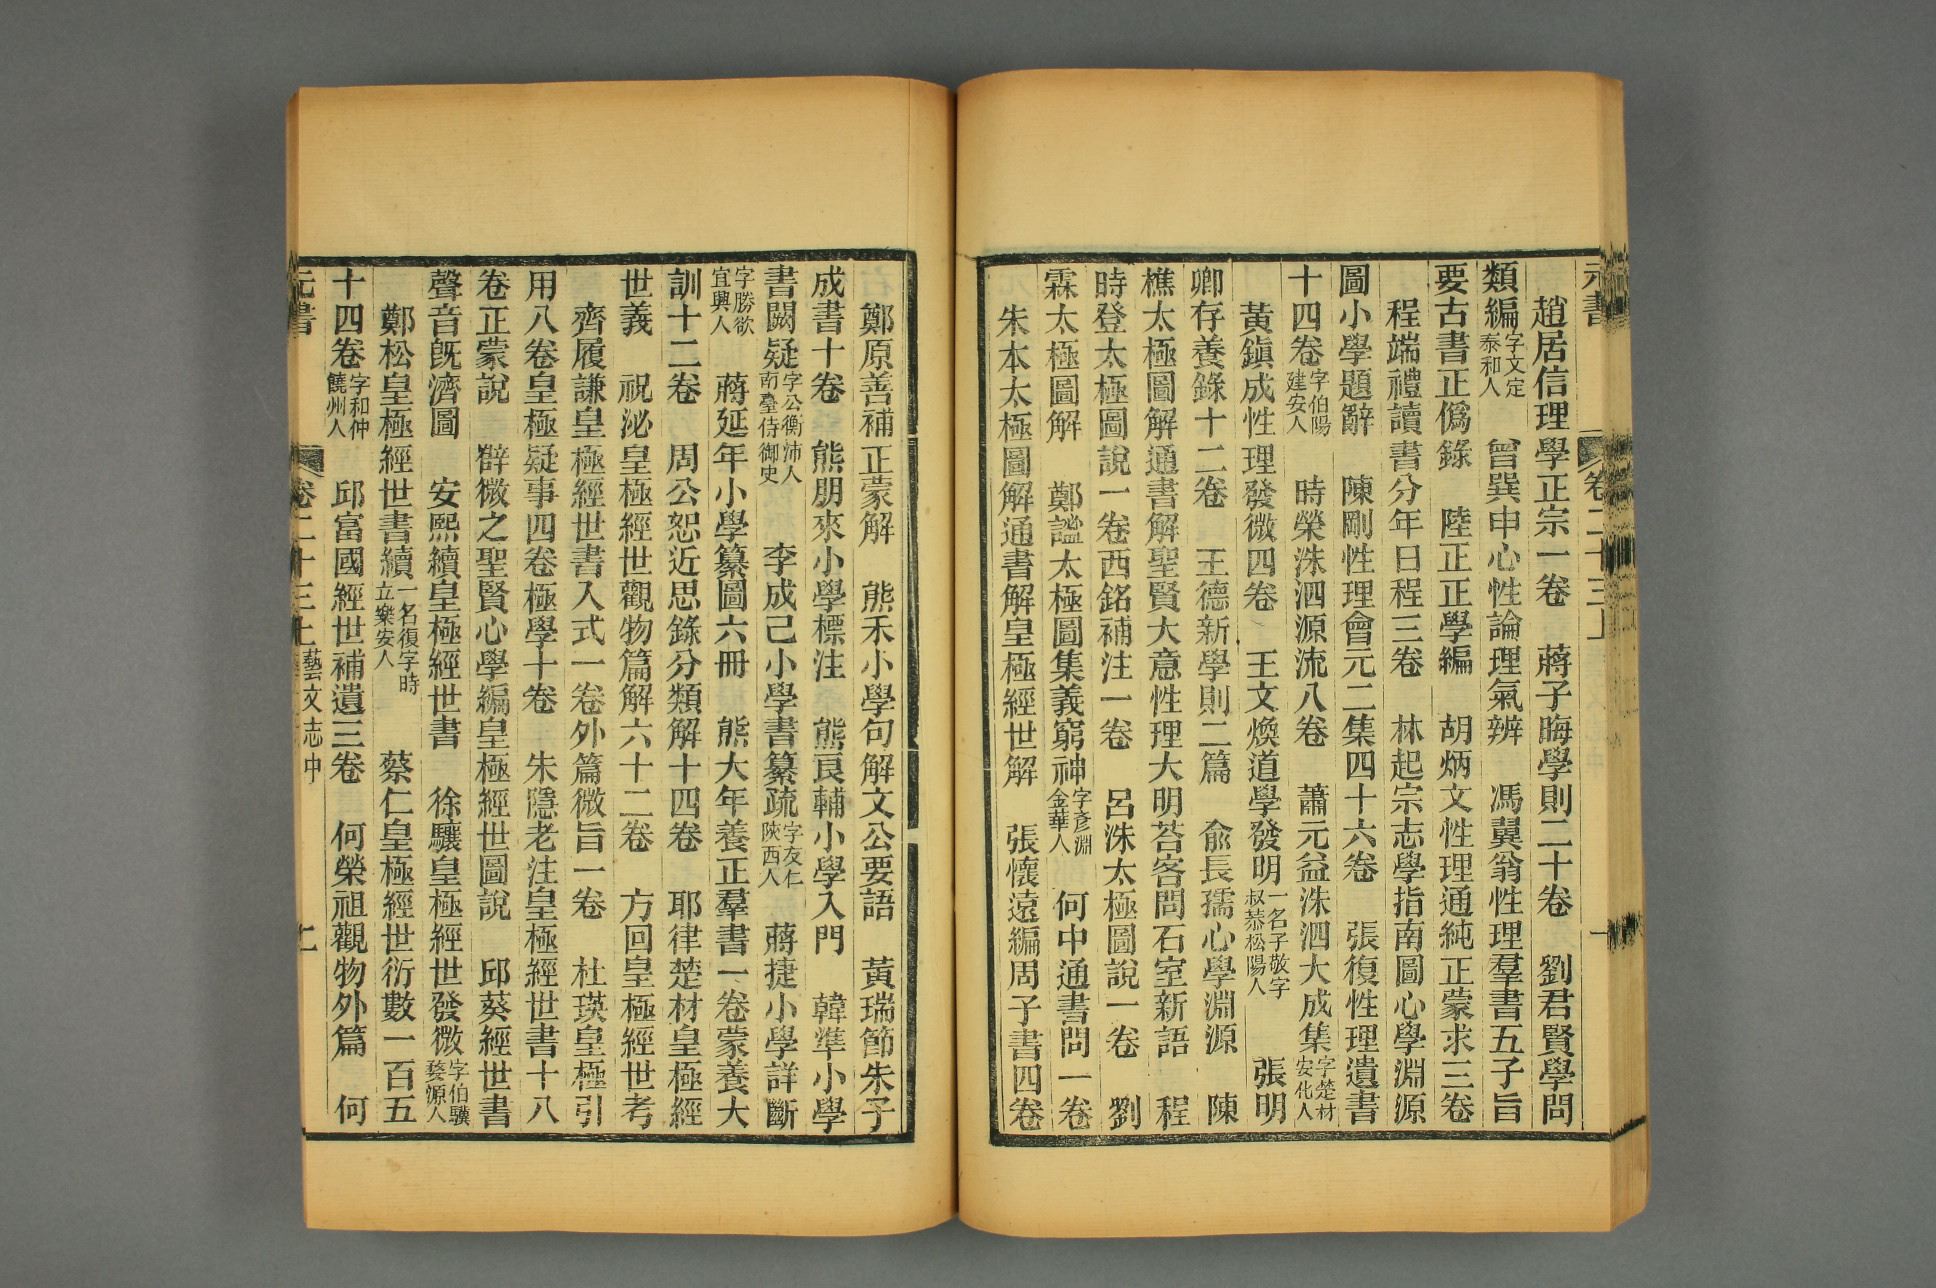 元書
卷二十三上
趙居信理學正宗一卷　蔣子晦學則二十卷　劉君賢學問
類編字文定泰和人　曾巽申心性論理氣辨　馮翼翁性理羣書五子旨
要古書正僞錄　陸正正學編　胡炳文性理通純正蒙求三卷
程端禮讀書分年日程三卷　林起宗志學指南圖心學淵源
圖小學題辭　陳剛性理會元二集四十六卷　張復性理遺書
十四卷字伯陽建安人　時榮洙泗源流八卷　蕭元益洙泗大成集字楚材安化人
黃鎭成性理發微四卷　王文煥道學發明一名子敬字叔恭松陽人　張明
卿存養錄十二卷　王德新學則二篇　俞長孺心學淵源　陳
樵太極圖解通書解聖賢大意性理大明荅客問石室新語　程
時登太極圖說一卷西銘補注一卷　呂洙太極圖說一卷　劉
霖太極圖解　鄭謐太極圖集義窮神字彥淵金華人　何中通書問一卷
朱本太極圖解通書解皇極經世解　張懷遠編周子書四卷
鄭原善補正蒙解　熊禾小學句解文公要語　黃瑞節朱子
成書十卷　熊朋來小學標注　熊良輔小學入門　韓準小學
書闕疑字公衡沛人南臺侍御史　李成己小學書纂疏字友仁陝西人　蔣捷小學詳斷
字勝欲宜興人　蔣延年小學纂圖六冊　熊大年養正羣書一卷蒙養大
訓十二卷　周公恕近思錄分類解十四卷　耶律楚材皇極經
世義　祝泌皇極經世觀物篇解六十二卷　方回皇極經世考
齊履謙皇極經世書入式一卷外篇微旨一卷　杜瑛皇極引
用八卷皇極疑事四卷極學十卷　朱隱老注皇極經世書十八
卷正蒙說　辥微之聖賢心學編皇極經世圖說　邱葵經世書
聲音旣濟圖　安熙續皇極經世書　徐驤皇極經世發微字伯驥婺源人
鄭松皇極經世書續一名復字時立樂安人　蔡仁皇極經世衍數一百五
十四卷字和仲饒州人　邱富國經世補遺三卷　何榮祖觀物外篇　何
元書
卷二十三上　藝文志中